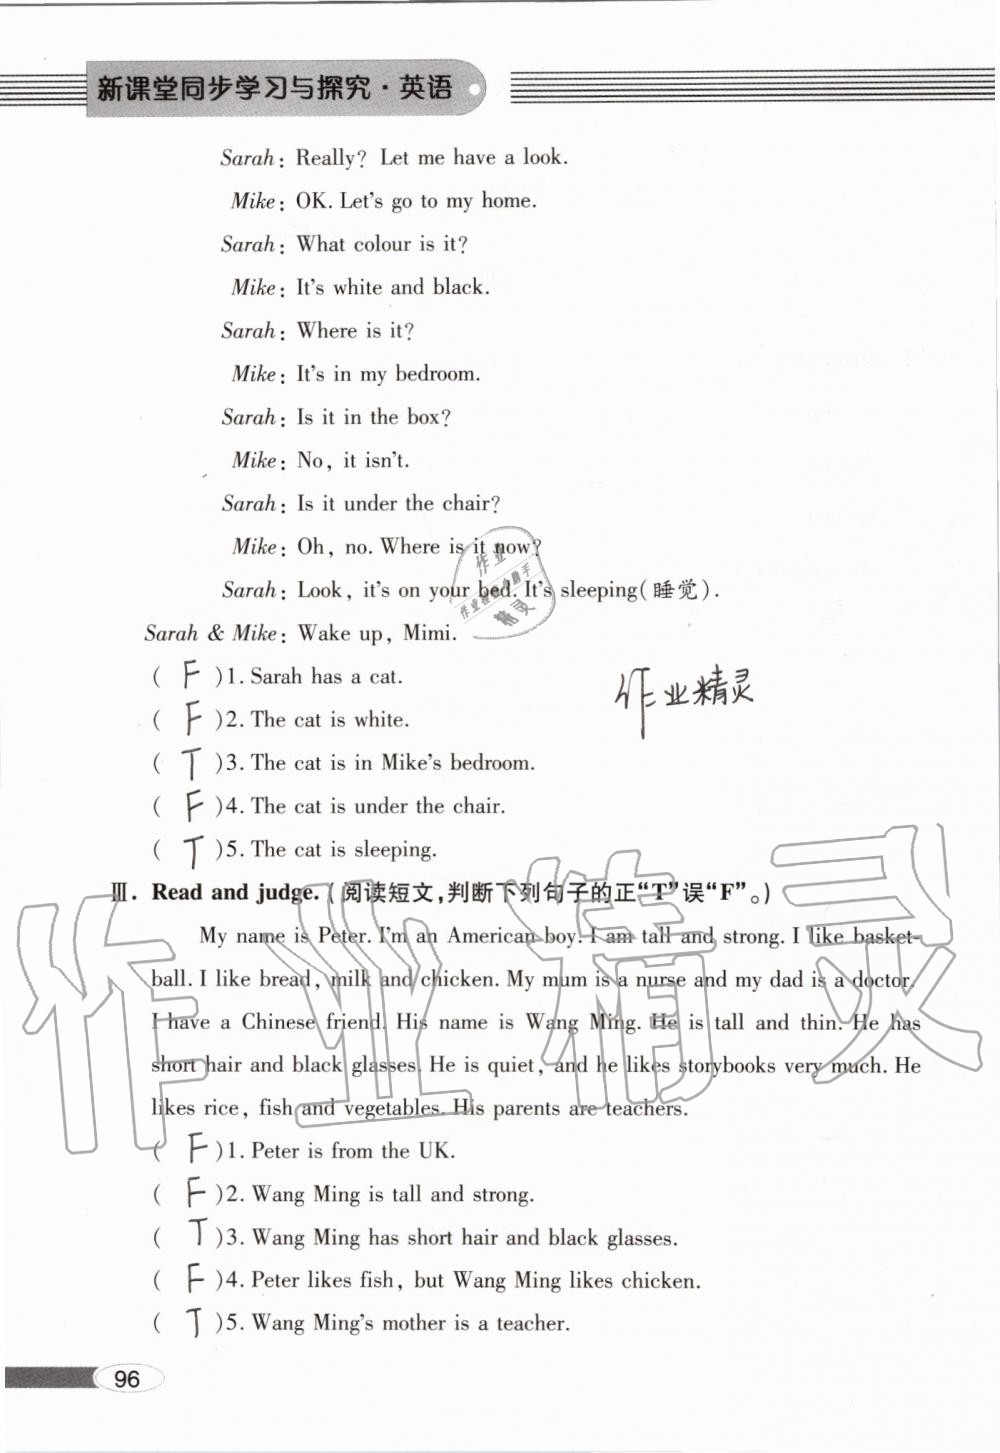 新课堂同步学习与探究·英语
Sarah: Really? Let me have a look.
Mike: OK. Let's go to my home.
Sarah: What colour is it?
Mike: It's white and black.
Sarah: Where is it?
Mike: It's in my bedroom.
Sarah: Is it in the box?
Mike: No, it isn't.
Sarah: Is it under the chair?
Mike: Oh, no. Where is it now?
Sarah: Look, it's on your bed. It's sleeping(睡觉).
Sarah & Mike: Wake up, Mimi.
( F )1. Sarah has a cat.
作业精灵
( F )2. The cat is white.
( T )3. The cat is in Mike's bedroom.
( F )4. The cat is under the chair.
( T )5. The cat is sleeping.
Ⅲ. Read and judge. (阅读短文,判断下列句子的正“T”误“F”。)
My name is Peter. I'm an American boy. I am tall and strong. I like basket-
ball. I like bread, milk and chicken. My mum is a nurse and my dad is a doctor.
I have a Chinese friend. His name is Wang Ming. He is tall and thin. He has
short hair and black glasses. He is quiet, and he likes storybooks very much. He
likes rice, fish and vegetables. His parents are teachers.
( F )1. Peter is from the UK.
( F )2. Wang Ming is tall and strong.
( T )3. Wang Ming has short hair and black glasses.
( F )4. Peter likes fish, but Wang Ming likes chicken.
( T )5. Wang Ming's mother is a teacher.
96
作业精灵